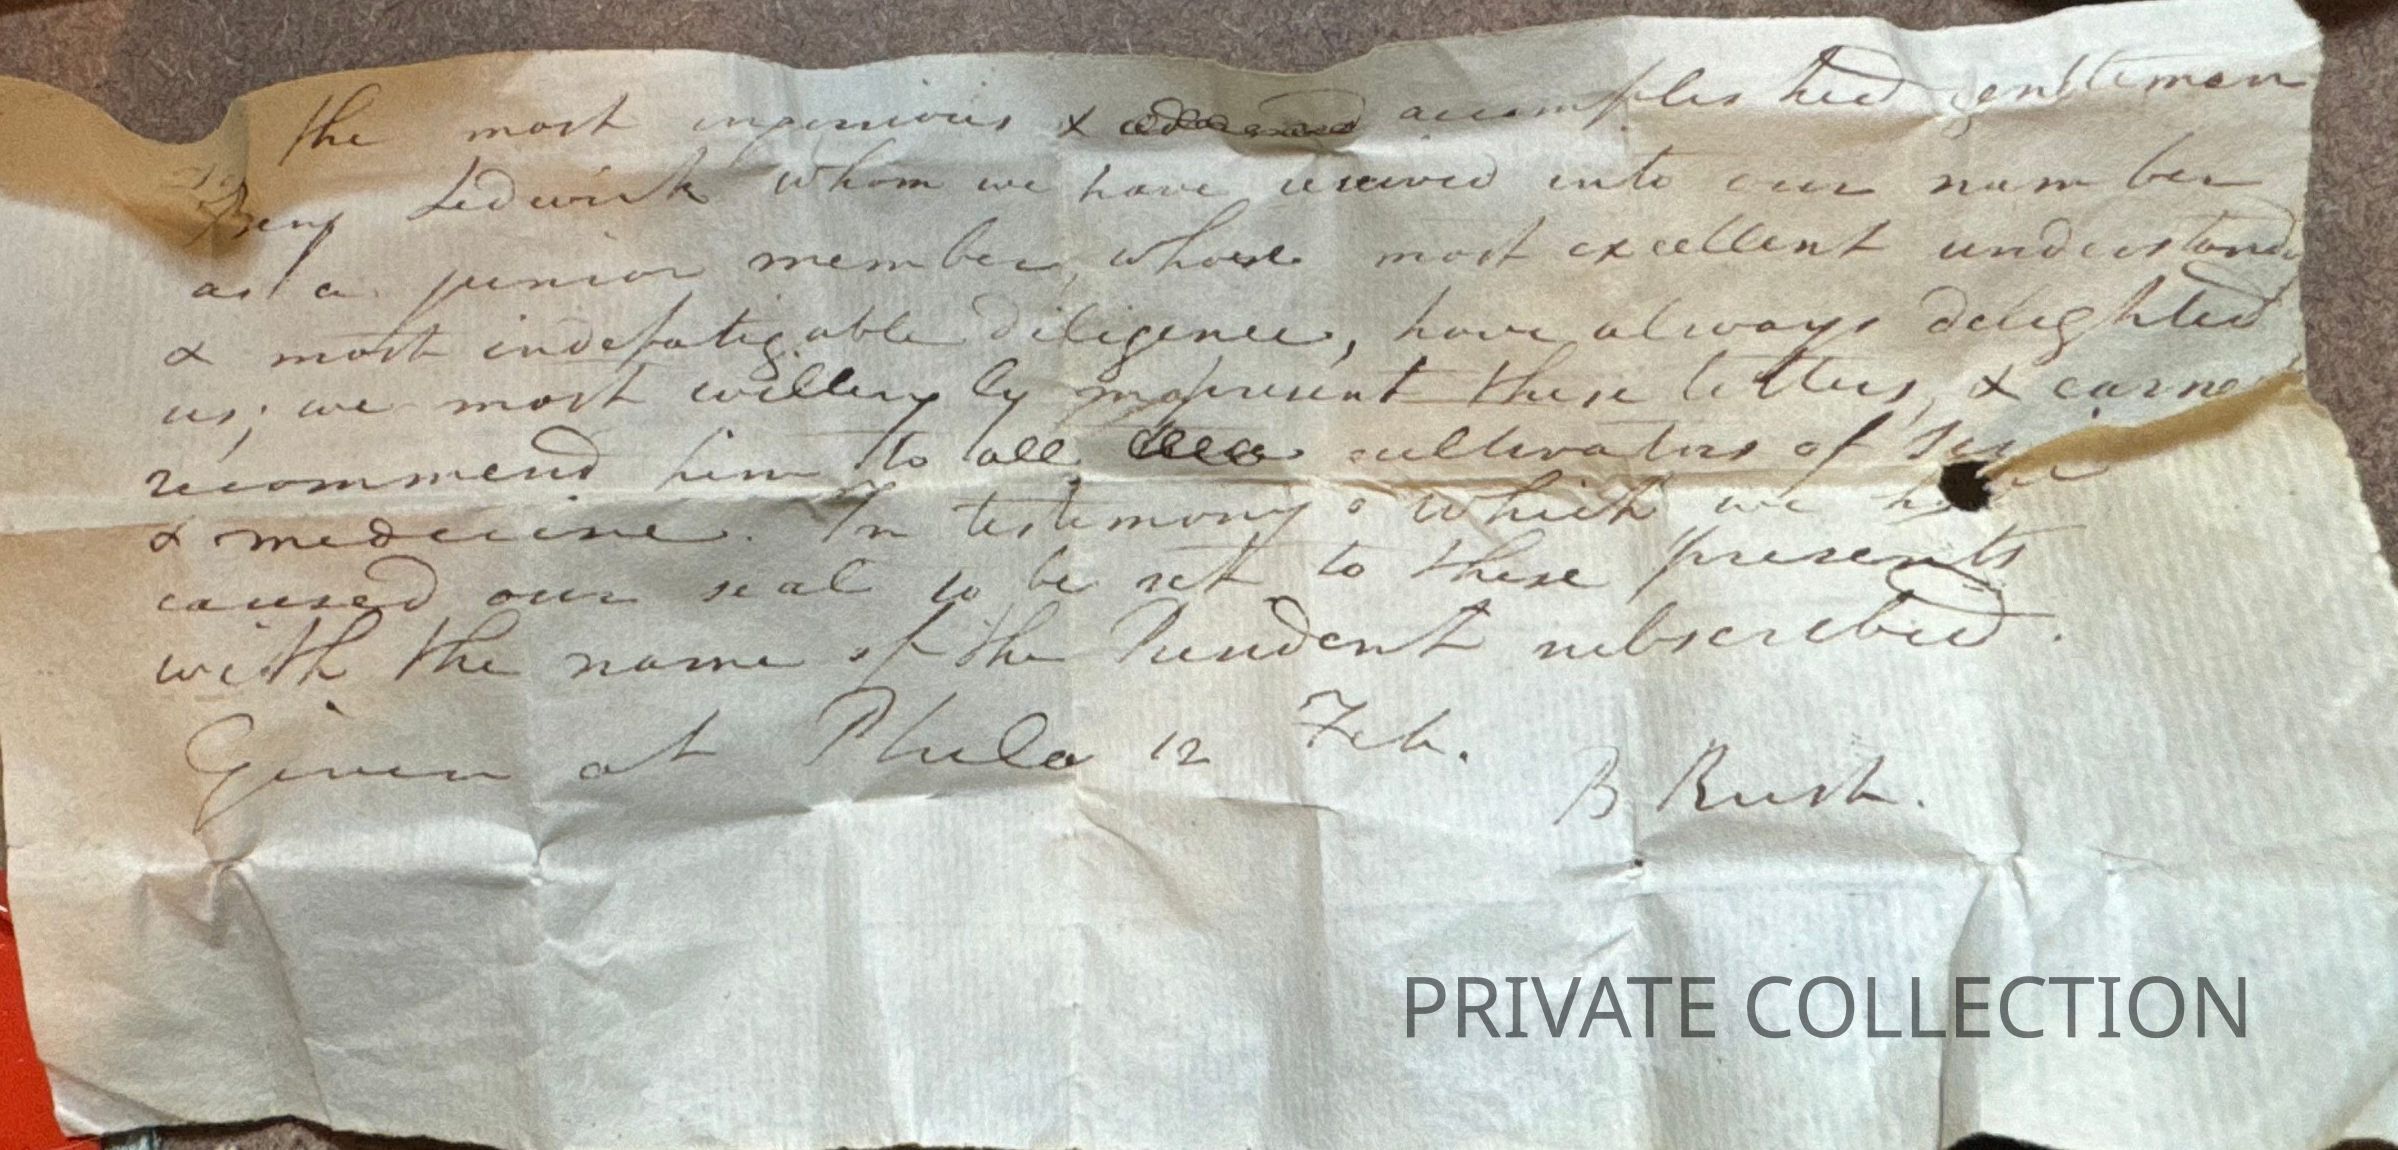 the most ingenious & accomplished gentleman
Benj Ledwick whom we have received into our number
as a junior member, whose most excellent understand
& most indefatigable diligence, have always delighted
us; we most willingly present these letters, & earne
recommend him to all cultivators of
& medicine. In testimony o which we have
caused our seal to be set to these presents
with the name of the President subscribed.
Given at Phila 12 Feb.
B Rush.
PRIVATE COLLECTION